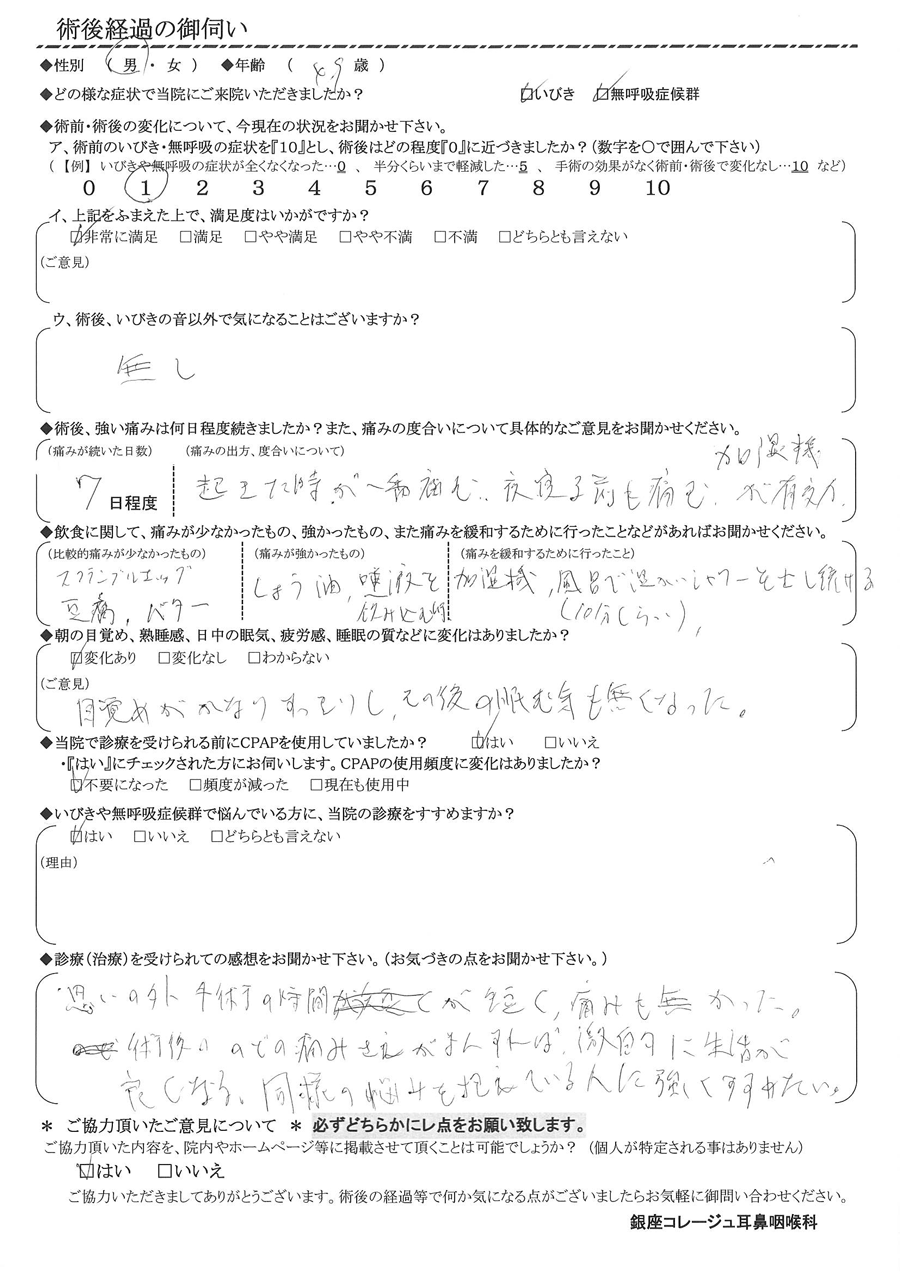 術後経過の御伺い
◆性別 ( 男 ・ 女 ) ◆年齢 ( 49 歳 )
◆どの様な症状で当院にご来院いただきましたか? ☑いびき ☑無呼吸症候群
◆術前・術後の変化について、今現在の状況をお聞かせ下さい。
ア、術前のいびき・無呼吸の症状を『10』とし、術後はどの程度『0』に近づきましたか?(数字を○で囲んで下さい)
(【例】いびきや無呼吸の症状が全くなくなった…0 、 半分くらいまで軽減した…5 、 手術の効果がなく術前・術後で変化なし…10 など)
0 1 2 3 4 5 6 7 8 9 10
イ、上記をふまえた上で、満足度はいかがですか?
☑非常に満足 □満足 □やや満足 □やや不満 □不満 □どちらとも言えない
(ご意見)
ウ、術後、いびきの音以外で気になることはございますか?
無し
◆術後、強い痛みは何日程度続きましたか?また、痛みの度合いについて具体的なご意見をお聞かせください。
(痛みが続いた日数) (痛みの出方、度合いについて)
7 日程度 起きた時が一番痛む、夜寝る前も痛む、加湿機が有効
◆飲食に関して、痛みが少なかったもの、強かったもの、また痛みを緩和するために行ったことなどがあればお聞かせください。
(比較的痛みが少なかったもの) (痛みが強かったもの) (痛みを緩和するために行ったこと)
スクランブルエッグ しょう油, 唾液を 加湿機, 風呂で温かいシャワーを出し続ける
豆腐, バター 飲み込む時 (10分くらい),
◆朝の目覚め、熟睡感、日中の眠気、疲労感、睡眠の質などに変化はありましたか?
☑変化あり □変化なし □わからない
(ご意見)
目覚めがかなりすっきりし、その後の眠む気も無くなった。
◆当院で診療を受けられる前にCPAPを使用していましたか? ☑はい □いいえ
・『はい』にチェックされた方にお伺いします。CPAPの使用頻度に変化はありましたか?
☑不要になった □頻度が減った □現在も使用中
◆いびきや無呼吸症候群で悩んでいる方に、当院の診療をすすめますか?
☑はい □いいえ □どちらとも言えない
(理由)
◆診療(治療)を受けられての感想をお聞かせ下さい。(お気づきの点をお聞かせ下さい。)
・思いの外 手術の時間が短く, 痛みも無かった。
術後ののどの痛みさえがまんすれば、劇的に生活が
良くなる。同様の悩みを抱えている人に強くすすめたい。
* ご協力頂いたご意見について * 必ずどちらかにレ点をお願い致します。
ご協力頂いた内容を、院内やホームページ等に掲載させて頂くことは可能でしょうか? (個人が特定される事はありません)
☑はい □いいえ
ご協力いただきましてありがとうございます。術後の経過等で何か気になる点がございましたらお気軽に御問い合わせください。
銀座コレージュ耳鼻咽喉科